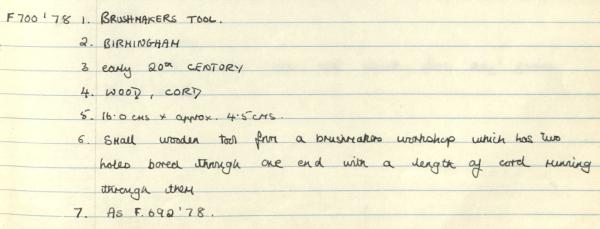 F700'78 1. BRUSHMAKERS TOOL.
2. BIRMINGHAM
3 early 20th CENTURY
4. WOOD, CORD
5. 16.0 cms x approx. 4.5 cms.
6. Small wooden tool from a brushmakers workshop which has two
holes bored through one end with a length of cord running
through them
7. As F.692'78.